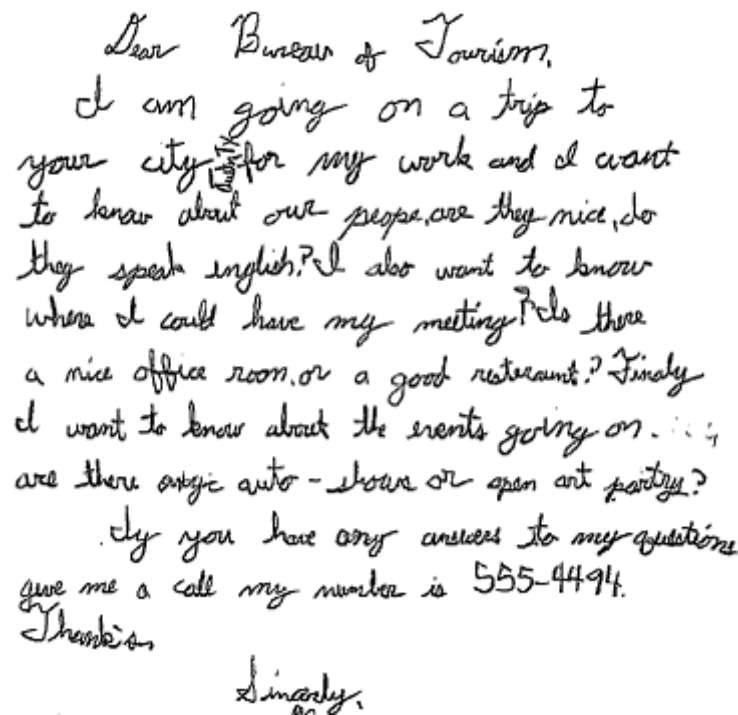 Dear Bureau of Tourism,
I am going on a trip to
your city for my work and I want
to know about our peope, are they nice, do
they speak english? I also want to know
where I could have my meeting? Is there
a nice office room, or a good resteraunt? Finaly
I want to know about the events going on.
are there auto-shows or open art partys?
If you have any answers to my questions
give me a call my number is 555-4494.
Sincerly,